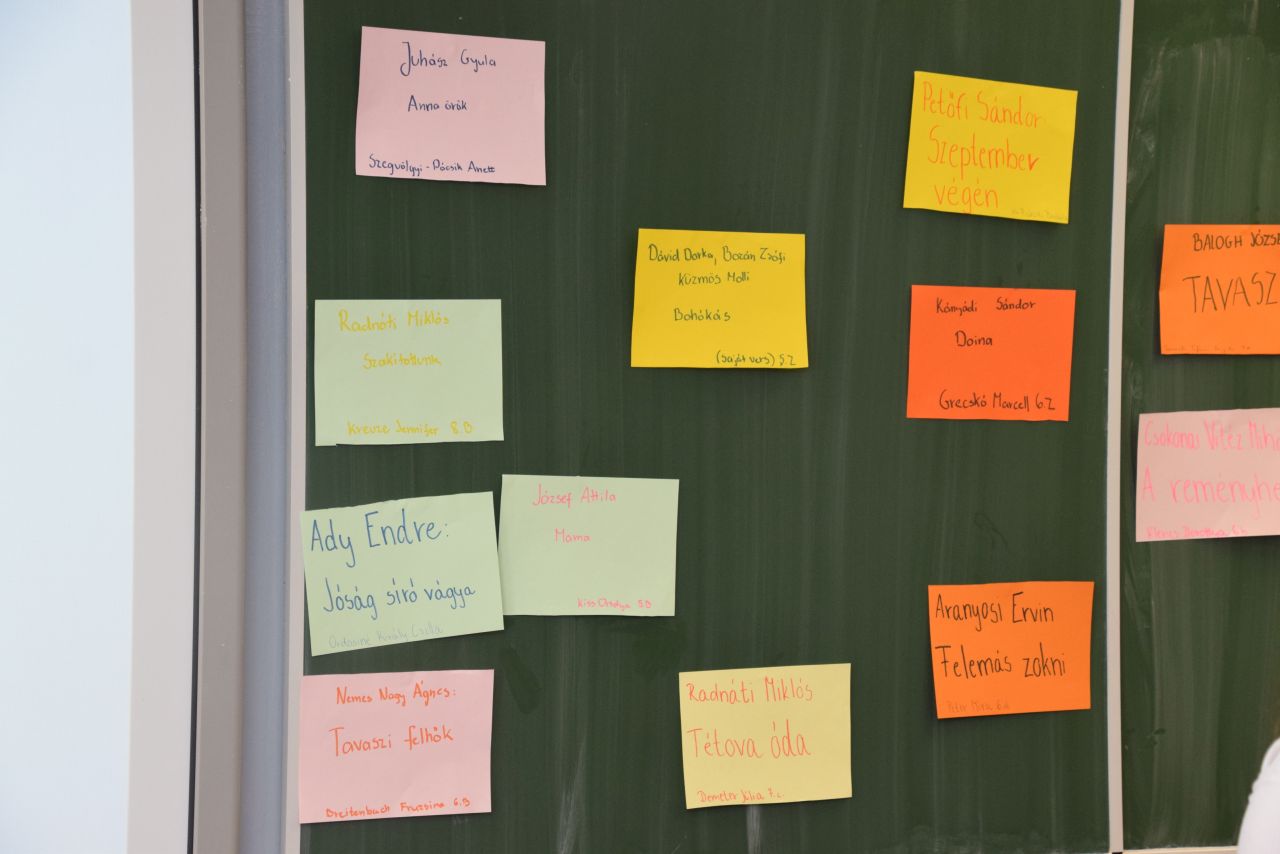 Juhász Gyula
Anna örök
Szegvölgyi - Pócsik Anett
Petőfi Sándor
Szeptember
végén
Dávid Dorka, Bozán Zsófi
Küzmös Molli
Bohókás
(saját vers) 5.Z
Radnóti Miklós
Szakítottunk
Kreuze Jennifer 8.B
Kányádi Sándor
Doina
Grecskó Marcell 6.Z
BALOGH JÓZSE
TAVASZ
Csokonai Vitéz Mihá
A reményhe
József Attila
Mama
Kiss Orsolya 5.B
Ady Endre:
Jóság síró vágya
Ordasiné Király Csilla
Aranyosi Ervin
Felemás zokni
Péter Míra 6.a
Nemes Nagy Ágnes:
Tavaszi felhők
Breitenbach Fruzsina 6.B
Radnóti Miklós
Tétova óda
Demeter Júlia 7.c